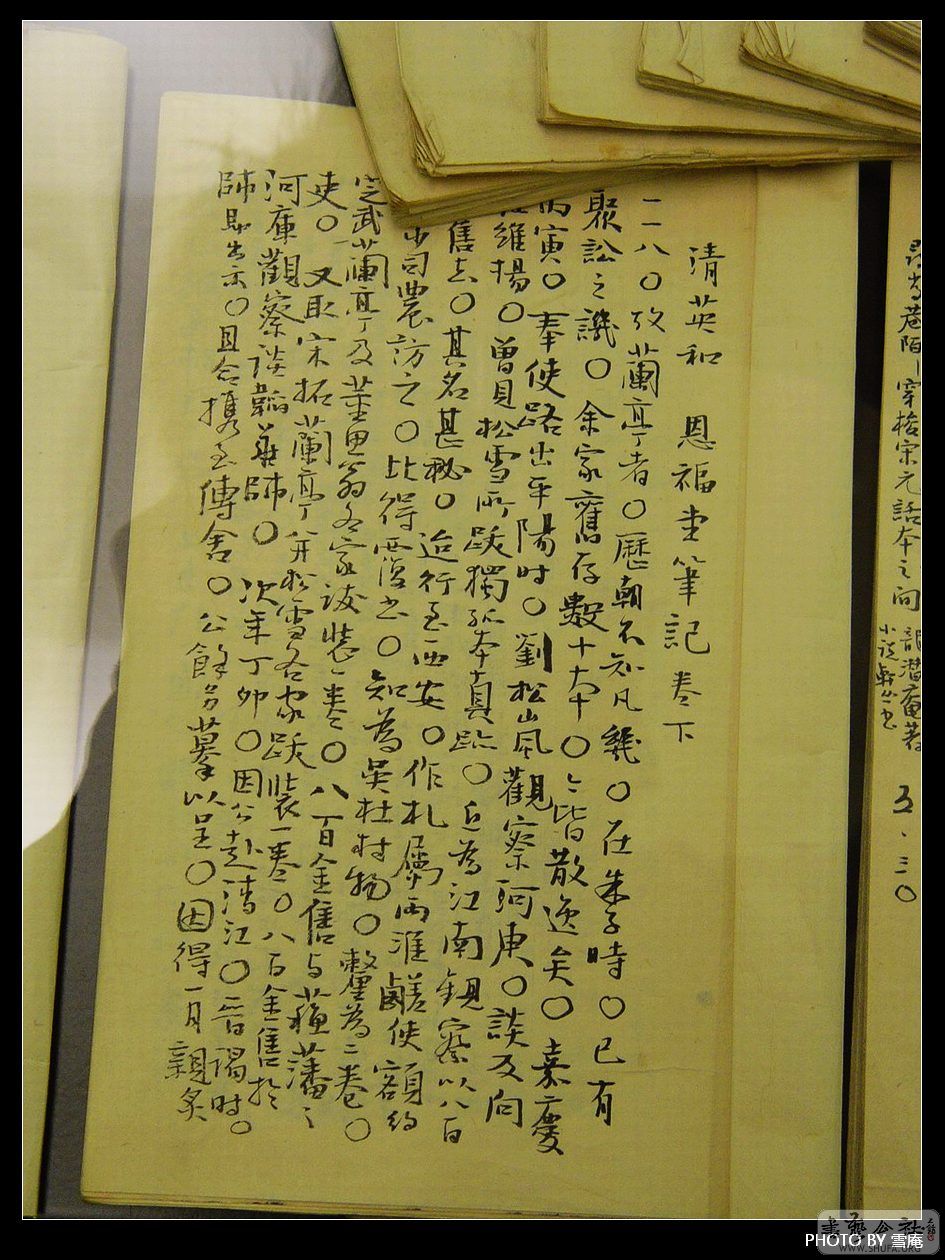 清英和　恩福堂筆記 卷下
二一八〇攷蘭亭者〇歷朝不知凡幾〇在朱子時〇已有
聚訟之譏〇余家舊存數十本〇〻皆散逸矣〇嘉慶
丙寅〇奉使路出平陽時〇劉松嵐觀察河東〇談及向
維揚〇曾見松雪所跋獨孤本真跡〇近為江南觀察以八百
售去〇其名甚秘〇迨行至西安〇作札屬兩淮鹺使額約
司農訪之〇比得覆書〇知為吳杜村物〇釐為二卷〇
定武蘭亭及董思翁各家跋裝一卷〇八百金售與蘇藩之
吏〇又取宋拓蘭亭并松雪各家跋裝一卷〇八百金售於
河庫觀察談韜華師〇次年丁卯〇因公赴清江〇晉謁時〇
師即出示〇且令攜至傳舍〇公餘另摹以呈〇因得一月親炙
巷陌
穿梭宋元話本之间
潜庵著
小说轩丛书
五·三〇
書藝公社
WWW.SHUFA.ORG
PHOTO BY 雪庵